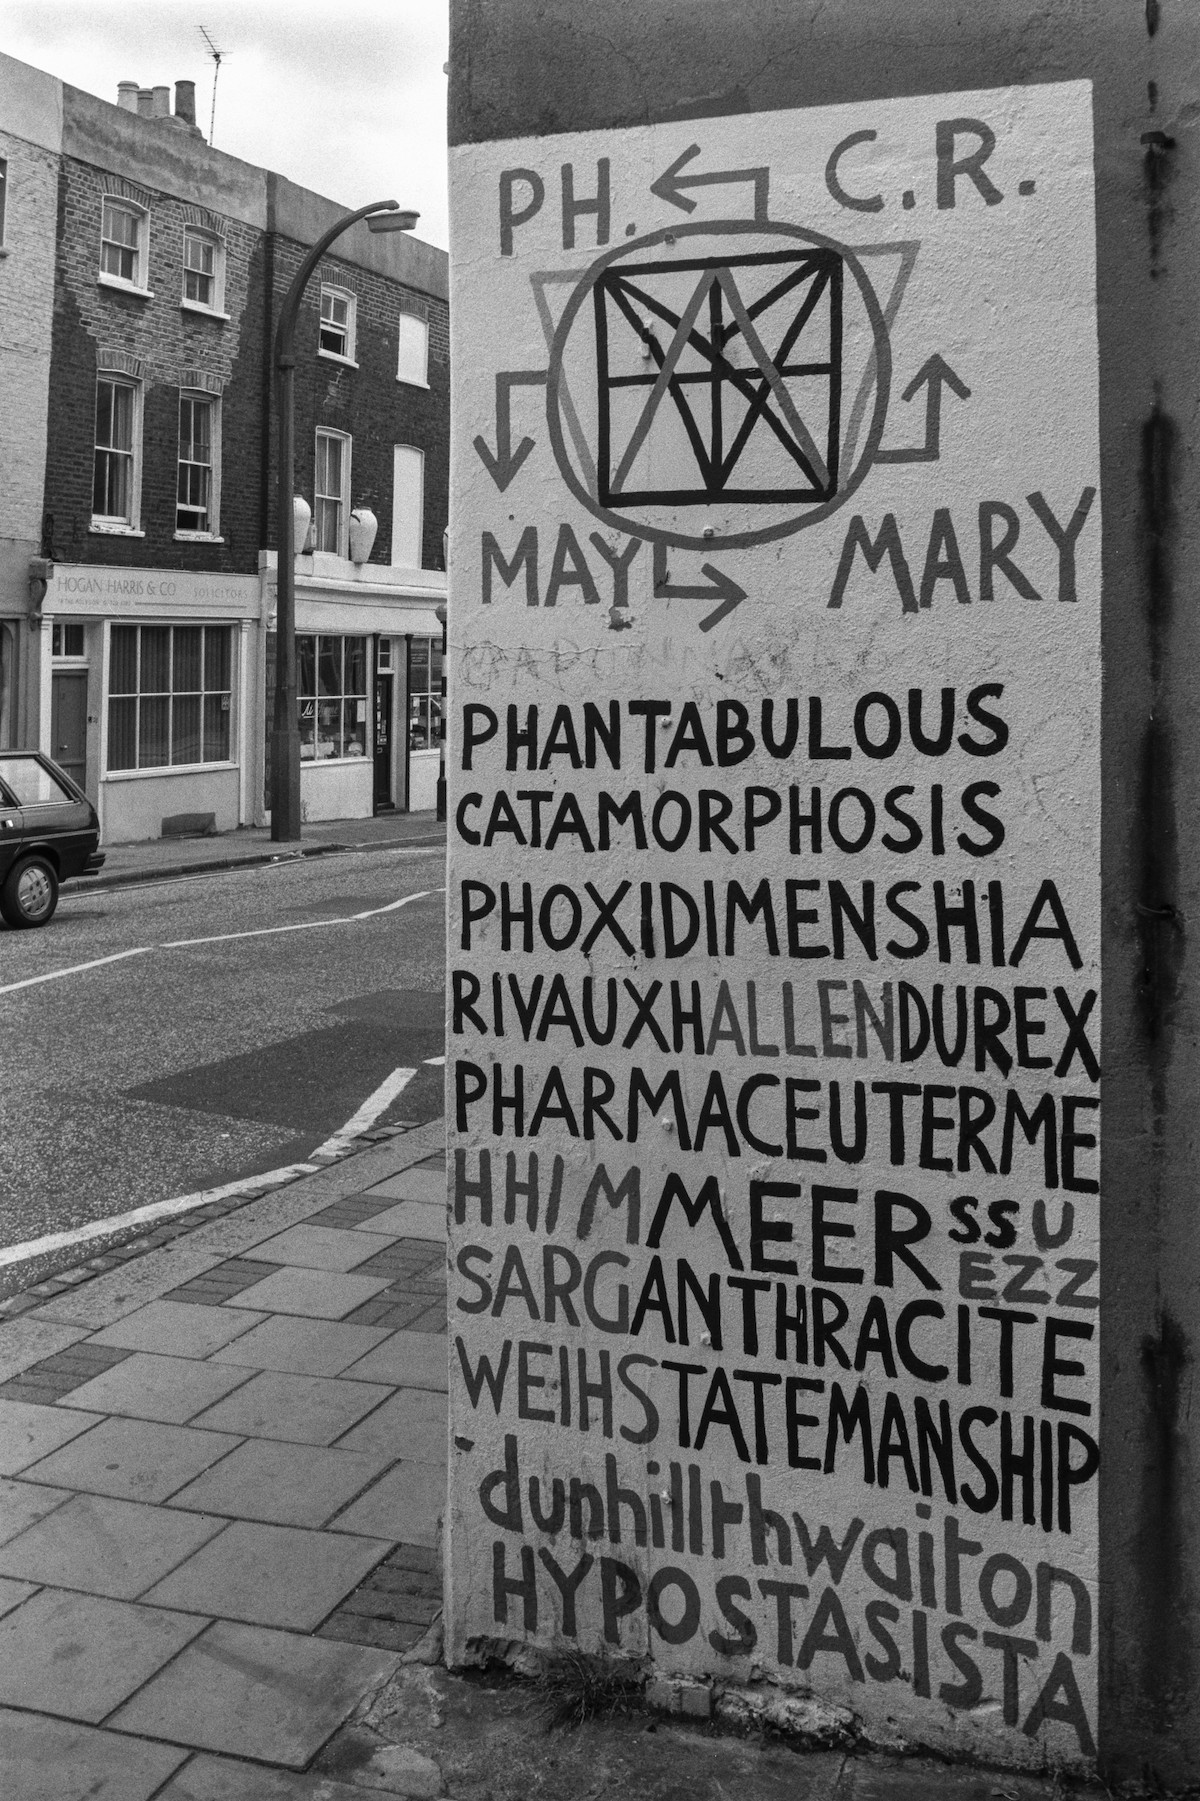 PH. C.R.
MAY MARY
PHANTABULOUS
CATAMORPHOSIS
PHOXIDIMENSHIA
RIVAUXHALLENDUREX
PHARMACEUTERME
HHIMMEER SSU
EZZ
SARGANTHRACITE
WEIHSTATEMANSHIP
dunhillthwaiton
HYPOSTASISTA
HOGAN HARRIS & CO SOLICITORS